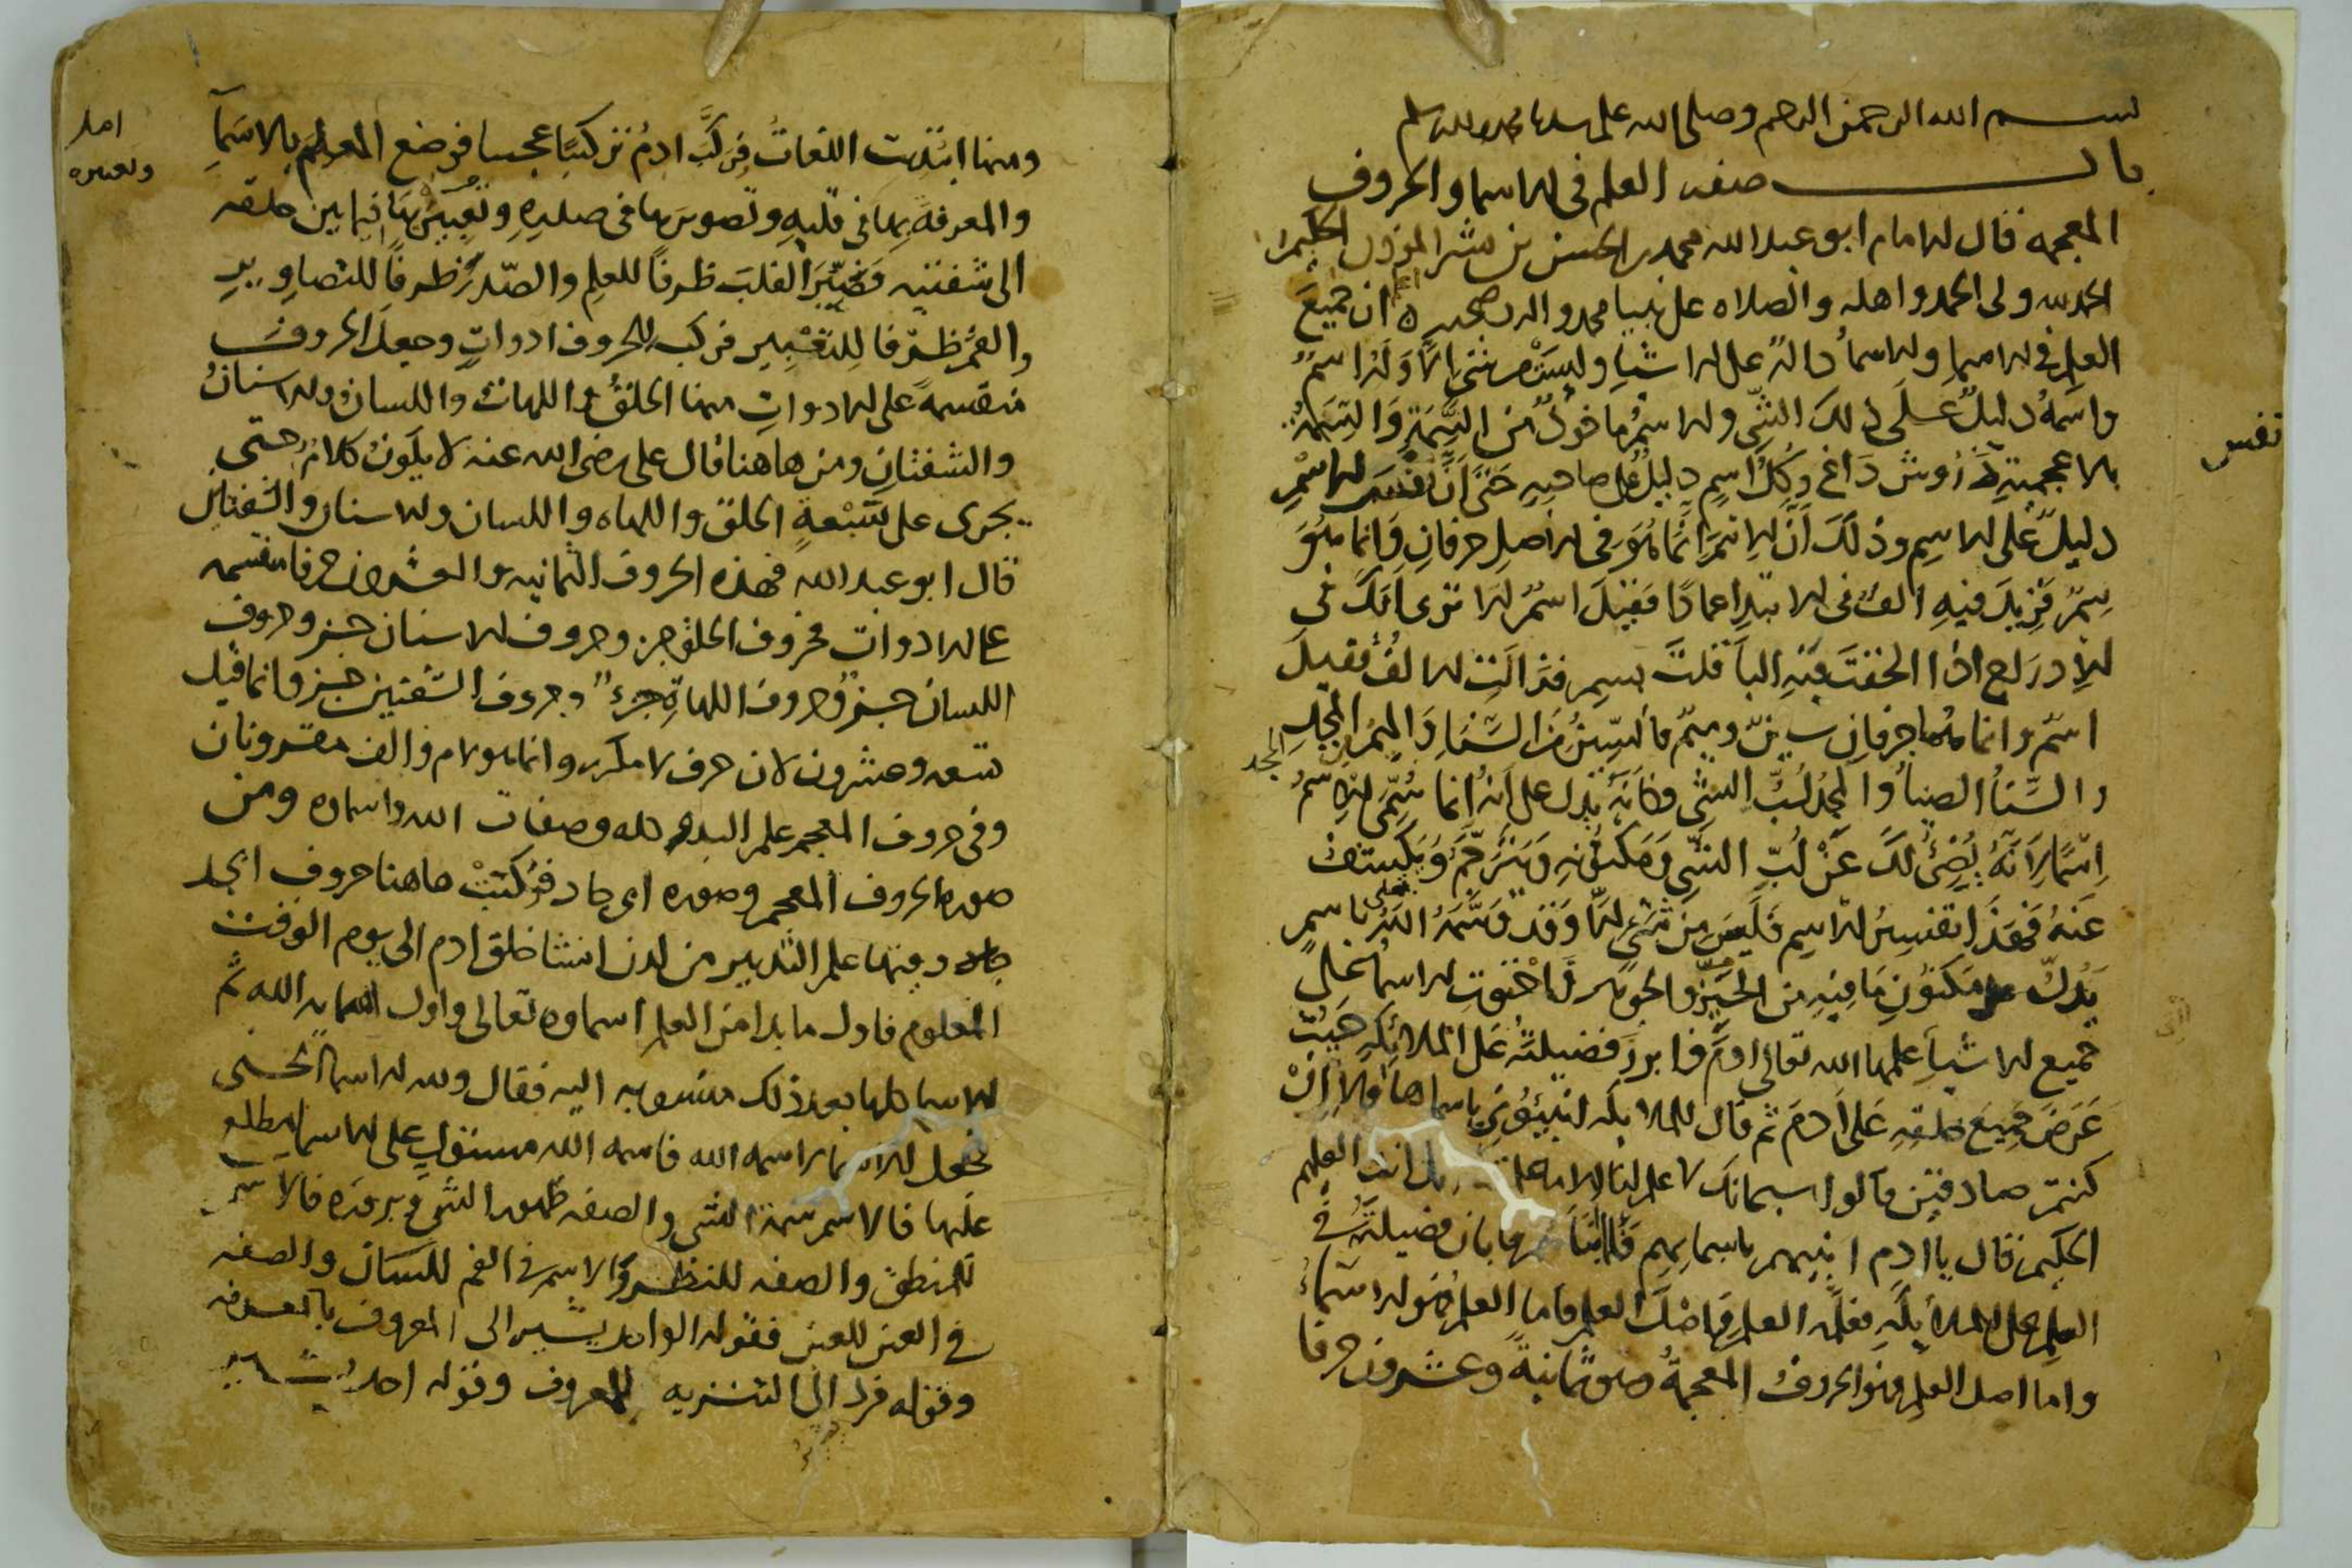 بسم الله الرحمن الرحيم وصلى الله على سيدنا محمد وسلم
باب صفه العلم في الاسما والحروف
المعجمه قال الامام ابو عبد الله محمد بن الحسن بن بشر المؤذن الحكيم
الحمد لله ولى الحمد واهله والصلاه على نبينا محمد واله وصحبه ان جميعَ
العلم في الاسما والاسماُ دالةٌ على الاشياءِ وليسَ من شئ الاّ وَلَهُ اسمٌ
واسمُهُ دليلٌ علَى ذلكَ الشئِ والاسمُ ماخوذٌ من السِّمَةِ وَالسِّمَةُ
بالاعجميةِ دَاغ وكلُّ اسمٍ دليلٌ على صاحبِهِ حَتَّى اَنَّ نفسَ الاسْمِ
دليلٌ على الاسمِ وذلكَ اَنَّ الاسمَ انَّما هُوَ في الاصلِ حرفانِ وَانما هُوَ
سِمٌ فزيدَ فيهِ الفٌ في الابتداِ عمادًا فقيلَ اسمٌ الا ترى انكَ في
الاِدراج اذا الحقتَ فيهِ الباَ قلتَ بسمِ فزالَتِ الالفُ فقيلَ
اسمٌ وانما هُما حرفانِ سينٌ وميمٌ فالسّينُ مِنَ السَّنَا وَالميمُ مِنَ المَجْدِ
والسَّنَاُ الضياُ والمَجْدُ لُبُّ الشئِ فكأنَّهُ يَدل على اَنهُ انما سُمِّىَ الاِسمُ
اِسْمًا لاَنَّهُ يُضِئُ لكَ عَنْ لُبِّ الشئِ ومَكنُونِهِ ويُتَرجِمُ وَيَكشفُ
عَنهُ فهَذَا تفسِيرُ الاسمِ فلَيسَ مِن شَئٍ الاَّ وَقَد وسَمَهُ اللهُ تعلى باسمٍ
يَدُلُّ على مَكنُونِ مَا فِيهِ مِن الجوهر فَاحْتَوتِ الاسماُ على
جميع الاشياءِ علمها الله تعالى ادمَ فابرزَ فضيلتَهُ على الملائِكَةِ حَيثُ
عَرَضَ جَمِيعَ خلقِهِ عَلَى اَدمَ ثم قال للملايكة انبِئُوني باسما هاولاءِ اِنْ
كنتم صادقين قالوا سبحانكَ لا علم لنا الا ما علمتنا انك انت العليم
الحكيم قال يا ادم انبيهم باسمايهم فلما انباهم بها بان فضيلتُهُ في
العلمِ على الملائِكَةِ فاما العلم فهو الاسماءُ
واما اصل العلمِ فهو الحروفُ المعجمةُ وهى ثمانيةٌ وعشرون حرفا
نفس
المجد
ومنها ابتديت اللغاتُ فركَّبَ ادمُ تركيبًا عجيبا فوضع العلمَ بالاسَماءِ
والمعرفةَ بها في قلبِهِ وتصويرها في صدرِهِ وتعبيرَها فيما بين حلقه
الى شفتيه فَصَيَّرَ القلبَ ظرفاً للعلمِ والصّدرَ ظرفاً للتصاويرِ
والفمَ ظرفا لِلتعْبِيرِ فركب للحروف ادواتٍ وجعلَ الحروفَ
منقسمةً على الادواتِ منها الحلقُ واللهاتُ واللسانُ والاسنانُ
والشفتانِ ومن هاهنا قال على رضى الله عنه لا يكونُ كلامٌ حتى
يجرى على سَبْعةٍ الحلق واللهاه واللسان والاسنان والشفتان
قال ابو عبد الله فهذه الحروف الثمانيه والعشرون حرفا منقسمه
على الادوات فحروف الحلق جز وحروف الاسنان جز وحروف
اللسان جز وحروف اللهاةِ جزء وحروف الشفتين جز وانما قيل
تسعه وعشرون لان حرف لا مكرر وانما هو لام والف مقرونان
وفى حروف المعجم علم البدء كله وصفات الله واسماوه ومن
صوره الحروف المعجم وصوره ابى جاد فرُكبَتْ هاهنا حروف ابجد
وفيها علم التدبير من لدن انشا خلق ادم الى يوم الوقت
المعلوم فاول ما بدا من العلم اسماوه تعالى واول اسمايه الله ثم
الاسما كلها بعد ذلك منسوبه اليه فقال ولله الاسماُ الحسنى
فجعل الاسما اسمه الله فاسمه الله مستولٍ على الاسما مطلع
عليها فالاسم سمة الشى والصفه ظهور الشى وبروزه فالاسم
للمنطق والصفه للنظر والاسم في الفم للسان والصفه
في العين للعين فقوله الواحد يشير الى المعروف بالمعرفه
وقوله فرد الى التنزيه للمعروف وقوله احد